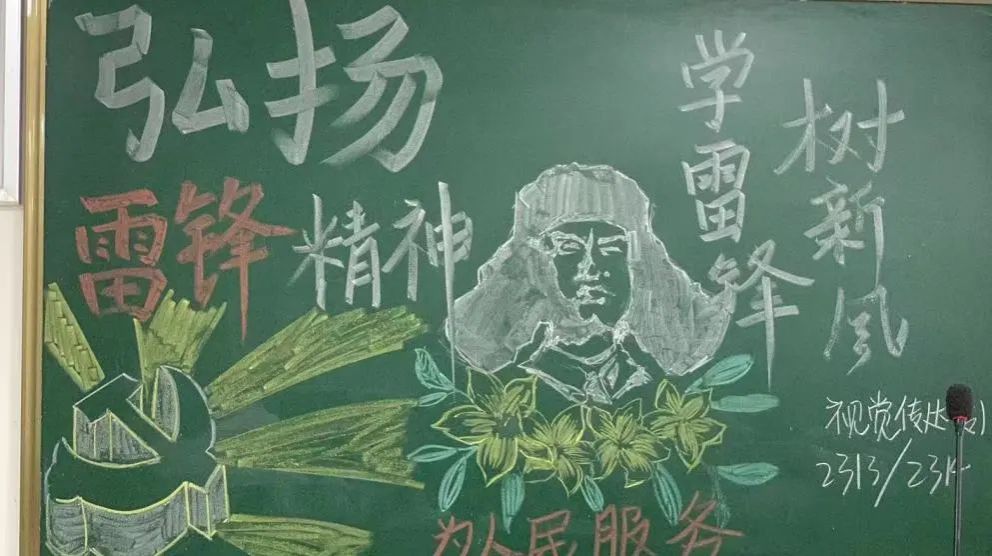 弘扬
雷锋精神
学雷锋
树新风
为人民服务
视觉传达
2313/231